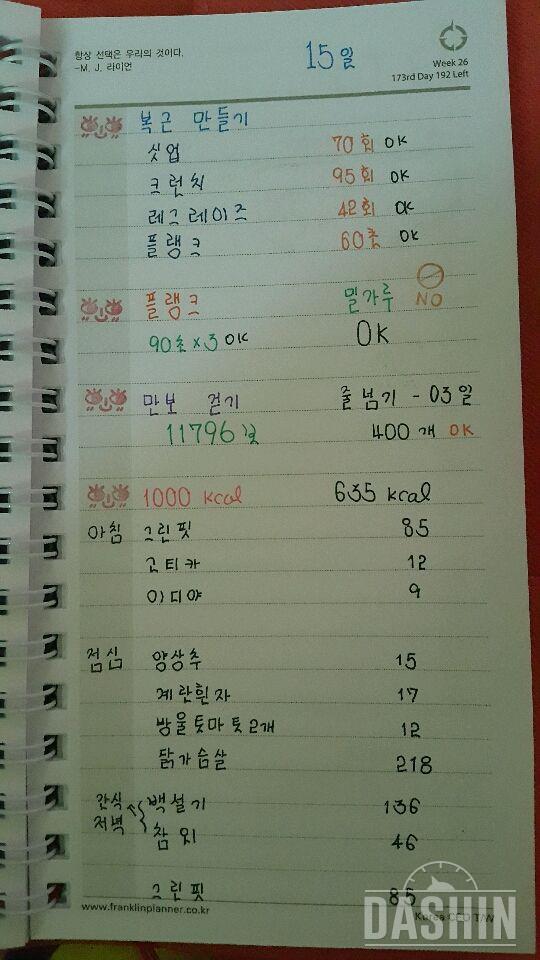 항상 선택은 우리의 것이다.
-M. J. 라이언
15일
Week 26
173rd Day 192 Left
복근 만들기
싯업 70회 OK
크런치 95회 OK
레그레이즈 42회 OK
플랭크 60초 OK
플랭크 밀가루 NO
90초x3 OK OK
만보 걷기 줄넘기 - 03일
11796 400개 OK
1000 kcal 635 kcal
아침 그린핏 85
고티카 12
이디야 9
점심 양상추 15
계란흰자 17
방울톳마톳2개 12
닭가슴살 218
간식 백설기 136
저녁 참외 46
그린핏 85
www.franklinplanner.co.kr
Korea CEO T/W
DASHIN